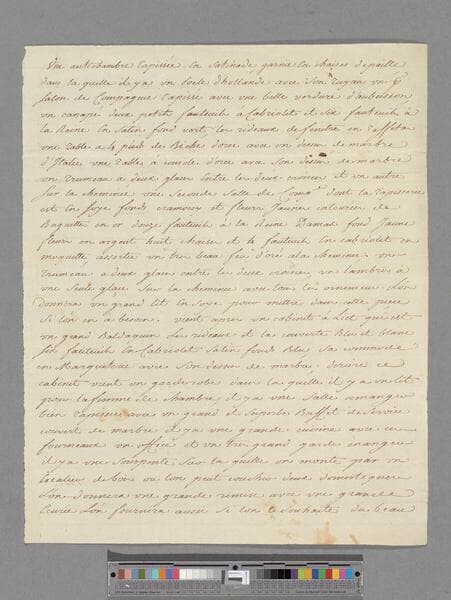 Une antichambre tapissée en satinade garnie en chaises de paille
dans la quelle il y a un poele d'hollande avec son tuyau un
salon de Compagnie tapissé avec une belle verdure d'aubusson
un canape deux petits fauteuil a Cabriolet et six fauteuil a
la Reine en Satin fond vert, les rideaux de fenetre en taffetas
une table a 4 pied de Biche dorée avec un dessus de marbre
d'Italie une table a console d'orée avec son dessus de marbre
un trumeau a deux glaces entre les deux croisées et un autre
sur la cheminée une seconde Salle de Comp.e dont la tapisserie
est en soye fonds cramoisy et fleurs Jaunes entourée de
Baguette en or douze fauteuil a la Reine Damas fond Jaune
fleurs en argent huit chaises et 4 fauteuil en cabriolet en
moquette assortie un tres beau feu d'oré a la cheminée un
trumeau a deux glaces entre les deux croisées un lambris a
une seule glace sur la cheminée avec tous les ornemens L'on
donnera un grand lit en soye pour mettre dans cette piece
si l'on en a besoin. vient apres un cabinet a Lict qui est
un grand Baldaquin Les rideaux et la couverte Bleu et blanc
six fauteuil en Cabriolet Satin fonds Bleu sa commode
en Marqueterie avec son dessus de marbre. derriere ce
cabinet vient un garderobe dans la quelle il y a un lit
pour la femme de chambre il y a une Salle a manger
bien tapissée avec un grand et superbe Buffet de Service
couvert de marbre il y a une grande cuisine avec un
fourneaux un office et un tres grand garde a manger
il y a une Souspente sur la quelle on monte par un
Escalier de bois ou l'on peut coucher deux domestiques
L'on donnera une grande remise avec une grande
Ecurie L'on fournira aussi si l'on le Souhaite du beau